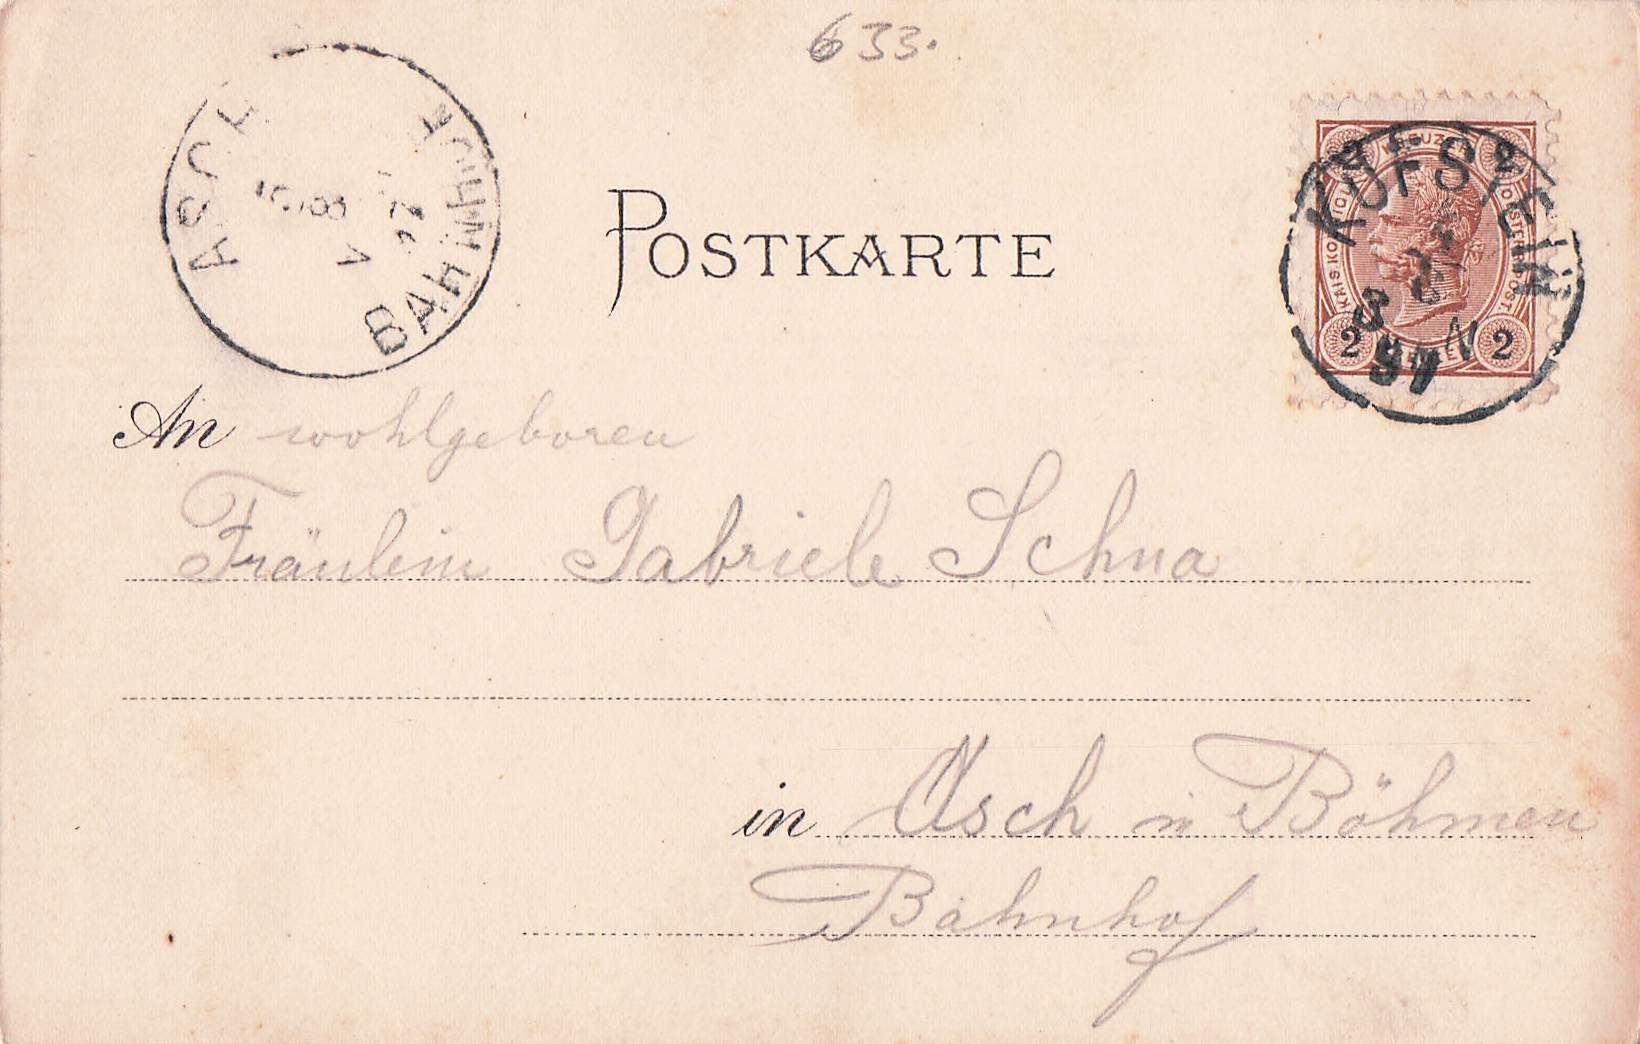 633.
ASCH
BAHNHOF
5 8
KUFSTEIN
3
97
KREUZER
KAIS. KÖNIGL. ÖSTERR. POST.
2 2
POSTKARTE
An wohlgeboren
Fräulein Gabriele Schua
in Asch in Böhmen
Bahnhof